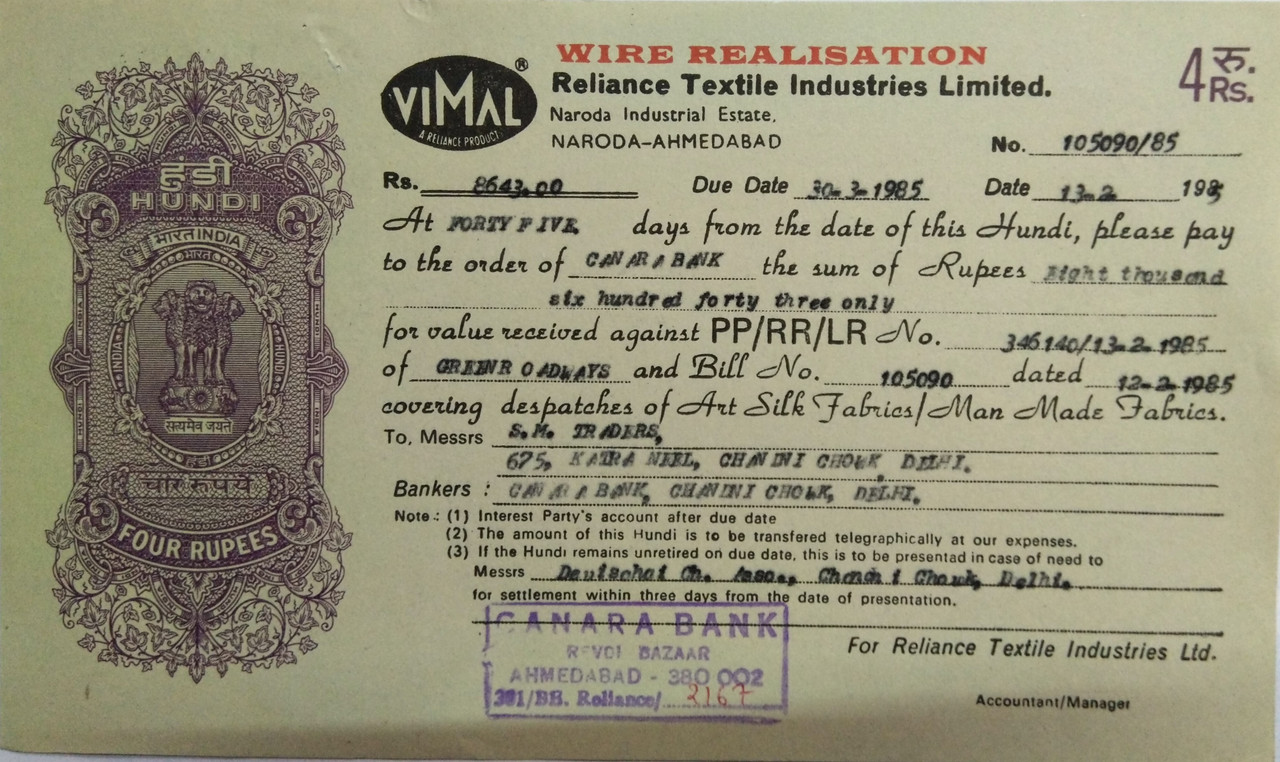 हुंडी
HUNDI
भारत INDIA
भारत
INDIA
HUNDI
सत्यमेव जयते
हुंडी
चार रूपये
FOUR RUPEES
VIMAL®
A RELIANCE PRODUCT
WIRE REALISATION
Reliance Textile Industries Limited.
Naroda Industrial Estate,
NARODA-AHMEDABAD
4 रु.
Rs.
No. 105090/85
Rs. 8643.00 Due Date 30-3-1985 Date 13-2 1985
At FORTY FIVE days from the date of this Hundi, please pay
to the order of CANARA BANK the sum of Rupees Eight thousand
six hundred forty three only
for value received against PP/RR/LR No. 346140/13-2-1985
of GREENROADWAYS and Bill No. 105090 dated 12-2-1985
covering despatches of Art Silk Fabrics/Man Made Fabrics.
To, Messrs S.M. TRADERS,
675, KATRA NEEL, CHANINI CHOWK, DELHI.
Bankers : CANARA BANK, CHANINI CHOWK, DELHI.
Note : (1) Interest Party's account after due date
(2) The amount of this Hundi is to be transfered telegraphically at our expenses.
(3) If the Hundi remains unretired on due date, this is to be presentad in case of need to
Messrs Ch. Asso., Chowk, Delhi.
for settlement within three days from the date of presentation.
CANARA BANK
BAZAAR
AHMEDABAD - 380 002
/BB. Reliance/ 2167
For Reliance Textile Industries Ltd.
Accountant/Manager